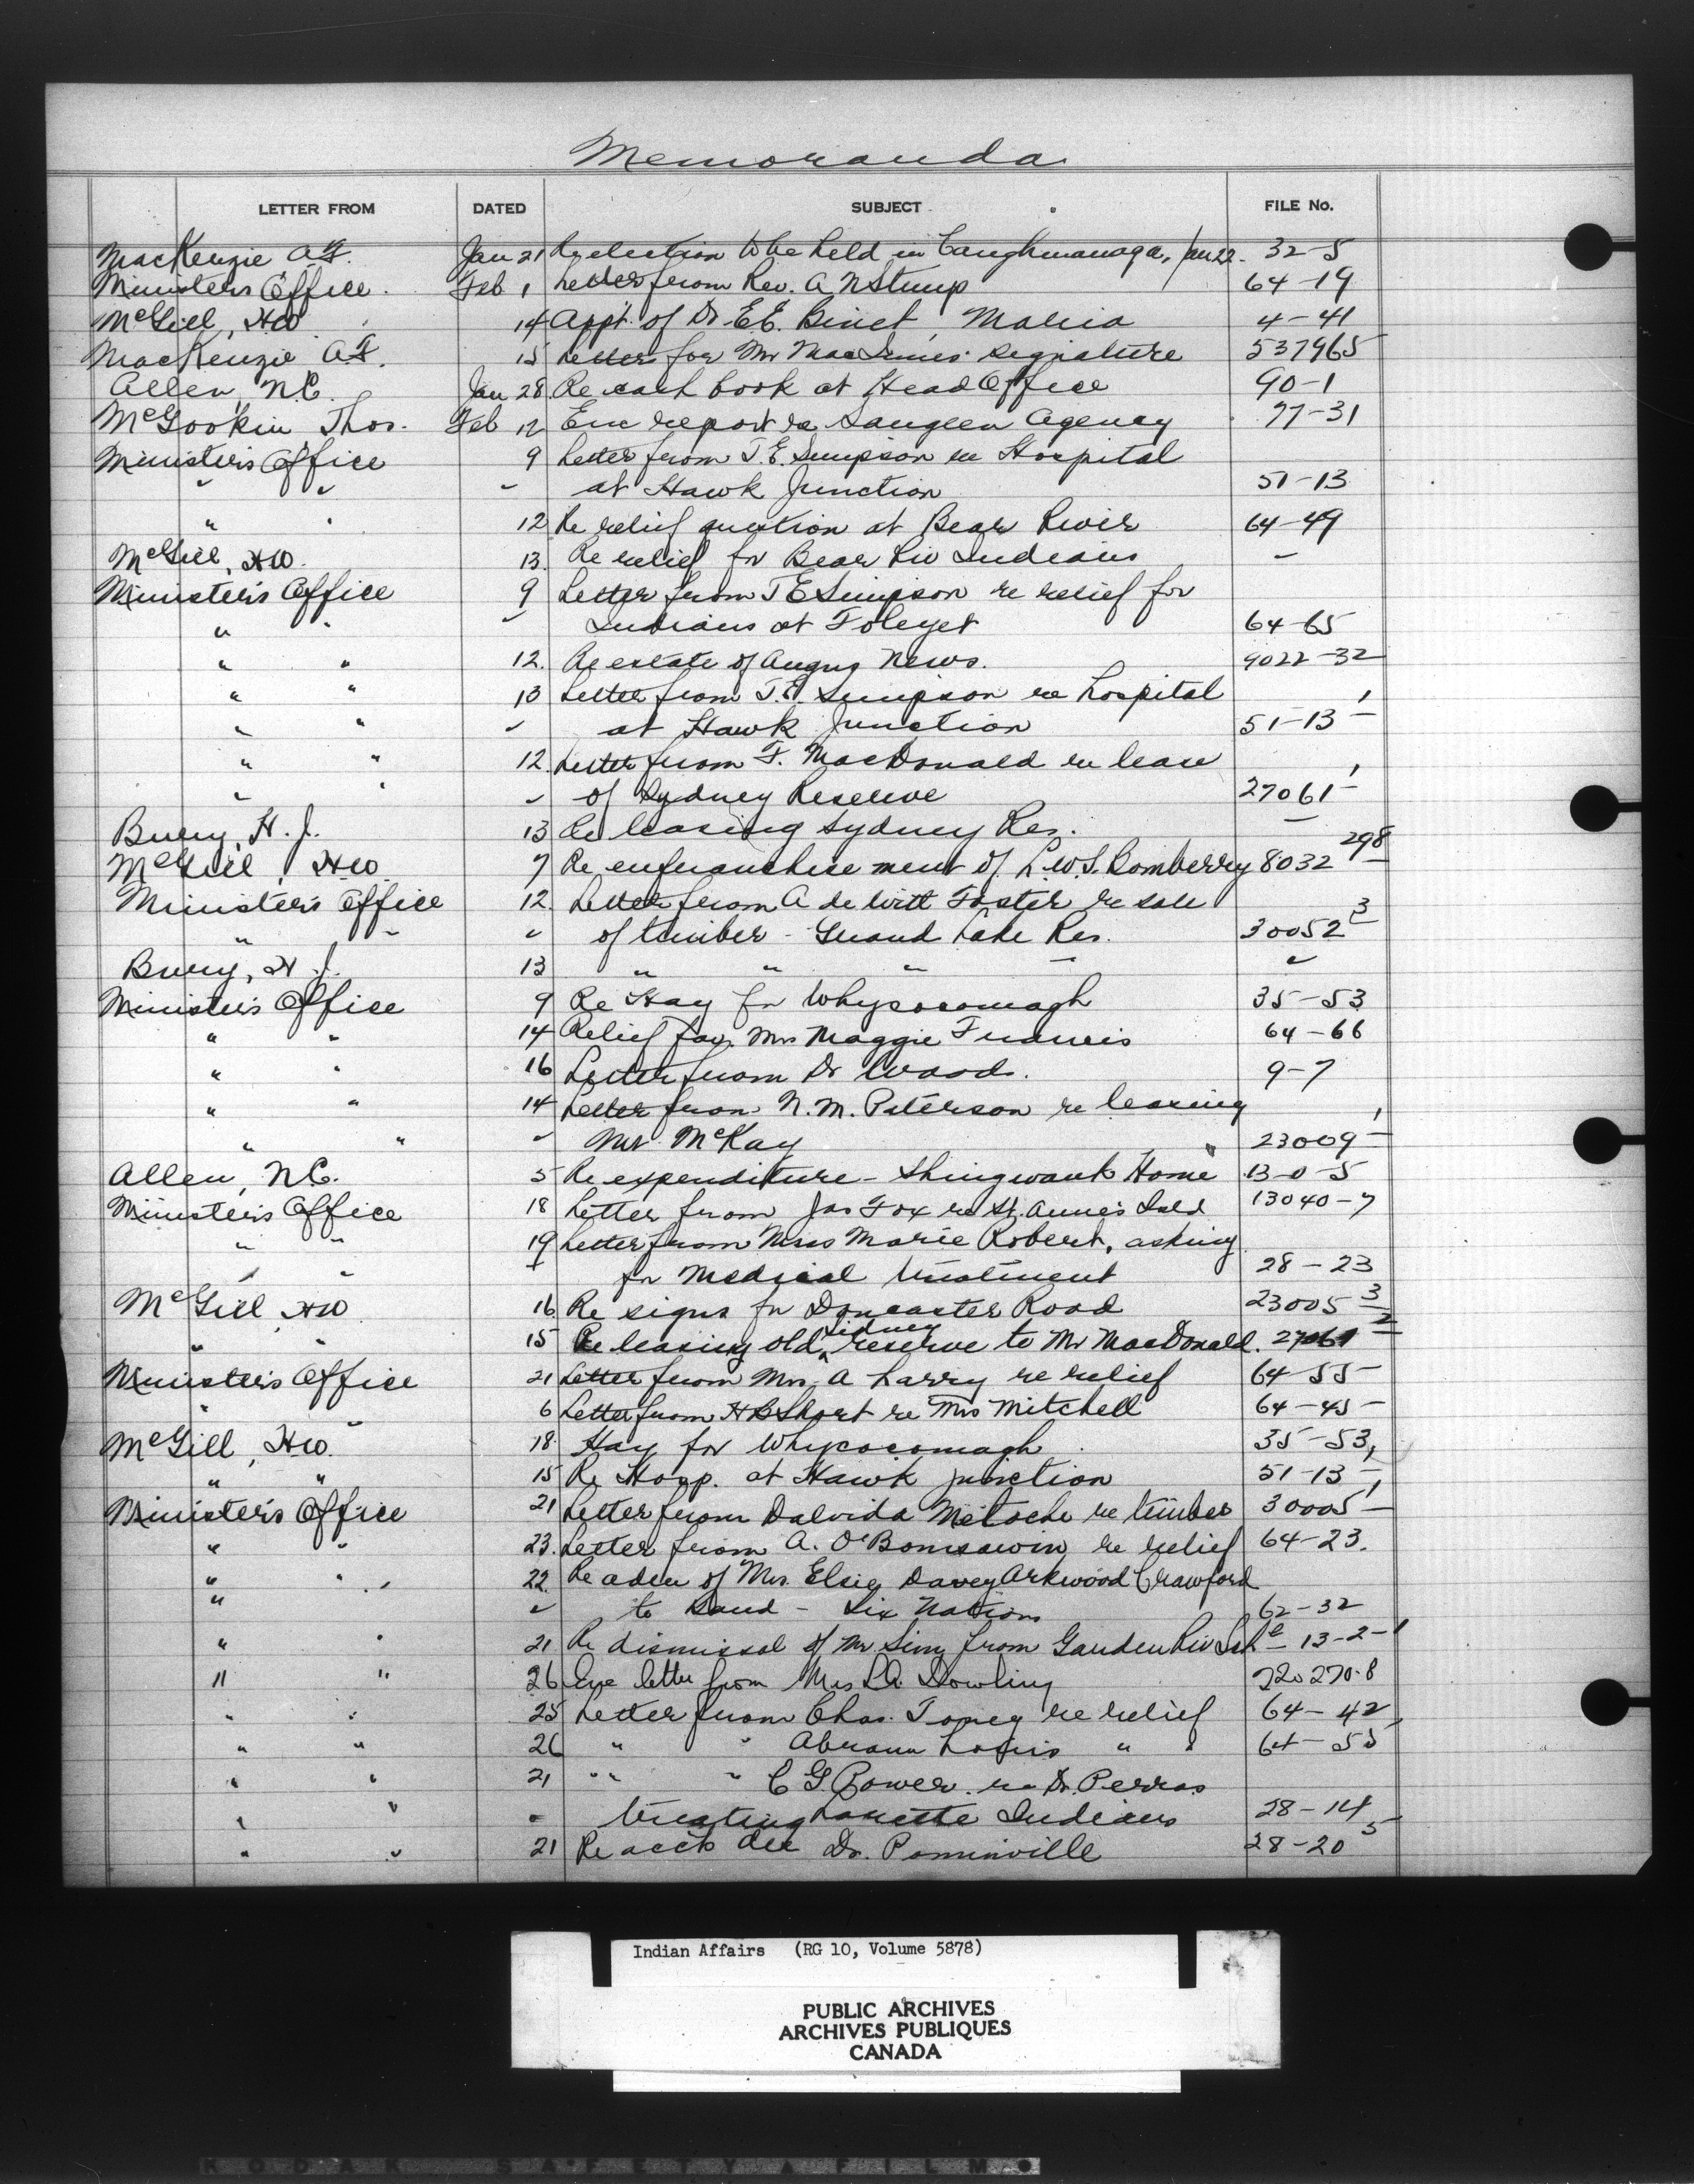 Memoranda
LETTER FROM DATED SUBJECT FILE No.
MacKenzie A.F. Jan 21 Re election to be held in Caughnawaga, Jan 22. 32-5
Minister's Office. Feb 1 Letter from Rev. A N Stump 64-19
McGill, HW 14 Appt. of Dr. E.E. Binet, Maria 4-41
MacKenzie A.F. 15 Letter for Mr MacInnes' signature 537965
Allen, N.C. Jan 28 Re cash book at Head Office 90-1
McGookin Thos. Feb 12 Enc report re Saugeen Agency 77-31
Minister's Office 9 Letter from T.E. Simpson re Hospital
" " " at Hawk Junction 51-13
" " 12 Re relief question at Bear River 64-49
McGill, HW. 13. Re relief for Bear Riv Indians "
Minister's Office 9 Letter from T E Simpson re relief for
" " " Indians at Foleyet 64-65
" " 12. Re estate of Angus News. 9022-32
" " 13 Letter from T.E. Simpson re hospital
" " " at Hawk Junction 51-13-1
" " 12. Letter from F. MacDonald re lease
" " " of Sydney Reserve 27061-1
Bury, H.J. 13 Re leasing Sydney Res. "
McGill, HW 7 Re enfranchisement of L.W.S. Bomberry 8032-298
Minister's Office 12. Letter from A de Witt Foster re sale
" " " of timber - Grand Lake Res. 30052-3
Bury, H.J. 13 " " " " "
Minister's Office 9 Re Hay for Whycocomagh 35-53
" " 14 Relief for Mrs Maggie Francis 64-66
" " 16 Letter from Dr Woods. 9-7
" " 14 Letter from N.M. Paterson re leasing
" " " Mt McKay 23009-1
Allen, N.C. 5 Re expenditure - Shingwauk Home 13-0-5
Minister's Office 18 Letter from Jas Fox re St. Anne's Isld 13040-7
" " 19 Letter from Miss Marie Robert, asking
" " " for Medical treatment 28-23
McGill, HW 16 Re signs for Doncaster Road 23005-3
" " 15 Re leasing old Sidney reserve to Mr MacDonald. 27061-2
Minister's Office 21 Letter from Mrs A Larry re relief 64-55
" " 6 Letter from H B Short re Mrs Mitchell 64-45
McGill, HW. 18 Hay for Whycocomagh 35-53
" " 15 Re Hosp. at Hawk Junction 51-13-1
Minister's Office 21 Letter from Dalvida Metache re timber 30005-1
" " 23. Letter from A. O'Bomsawin re relief 64-23.
" " 22. Re adm of Mrs. Elsie Davey Arkwood Crawford
" " to Band - Six Nations 62-32
" " 21 Re dismissal of Mr Sim from Garden Riv Schl - 13-2-1
" " 26 Enc letter from Mrs L A Dowling 720270-8
" " 25 Letter from Chas. Toney re relief 64-42
" " 26 " " Abram Louis " " 64-55
" " 21 " " " C G Power re Dr. Perras
" " " treating Lorette Indians 28-14
" " 21 Re accts due Dr. Pominville 28-20-5
Indian Affairs (RG 10, Volume 5878)
PUBLIC ARCHIVES
ARCHIVES PUBLIQUES
CANADA
KODAK SAFETY FILM